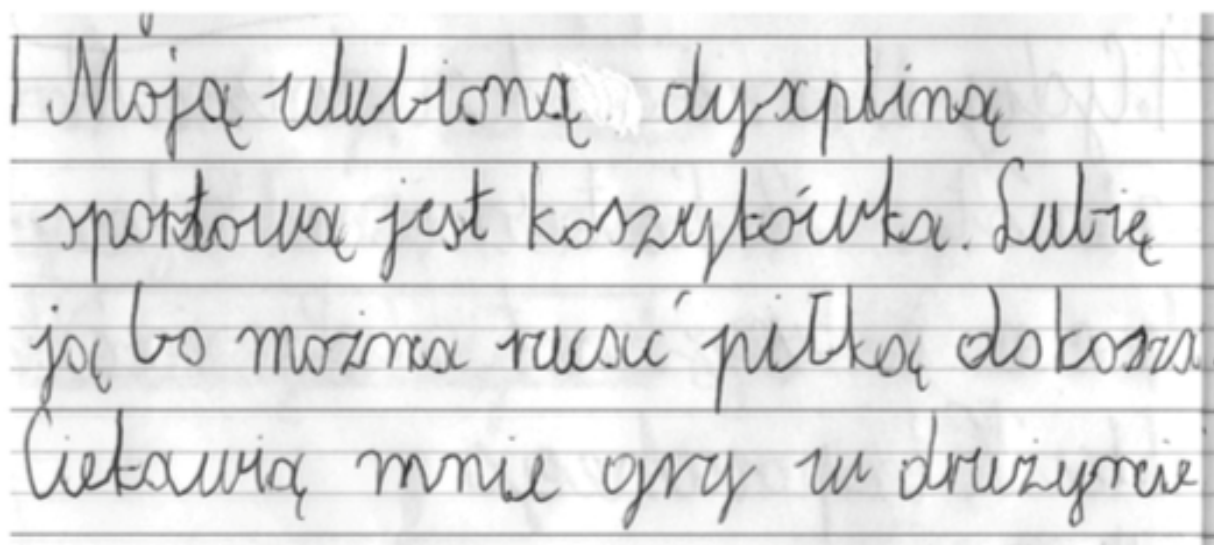 Moją ulubioną dyscpliną
sportową jest koszykówka. Lubię
ją bo można rucać piłką do kosza
Ciekawią mnie gry w drużynie